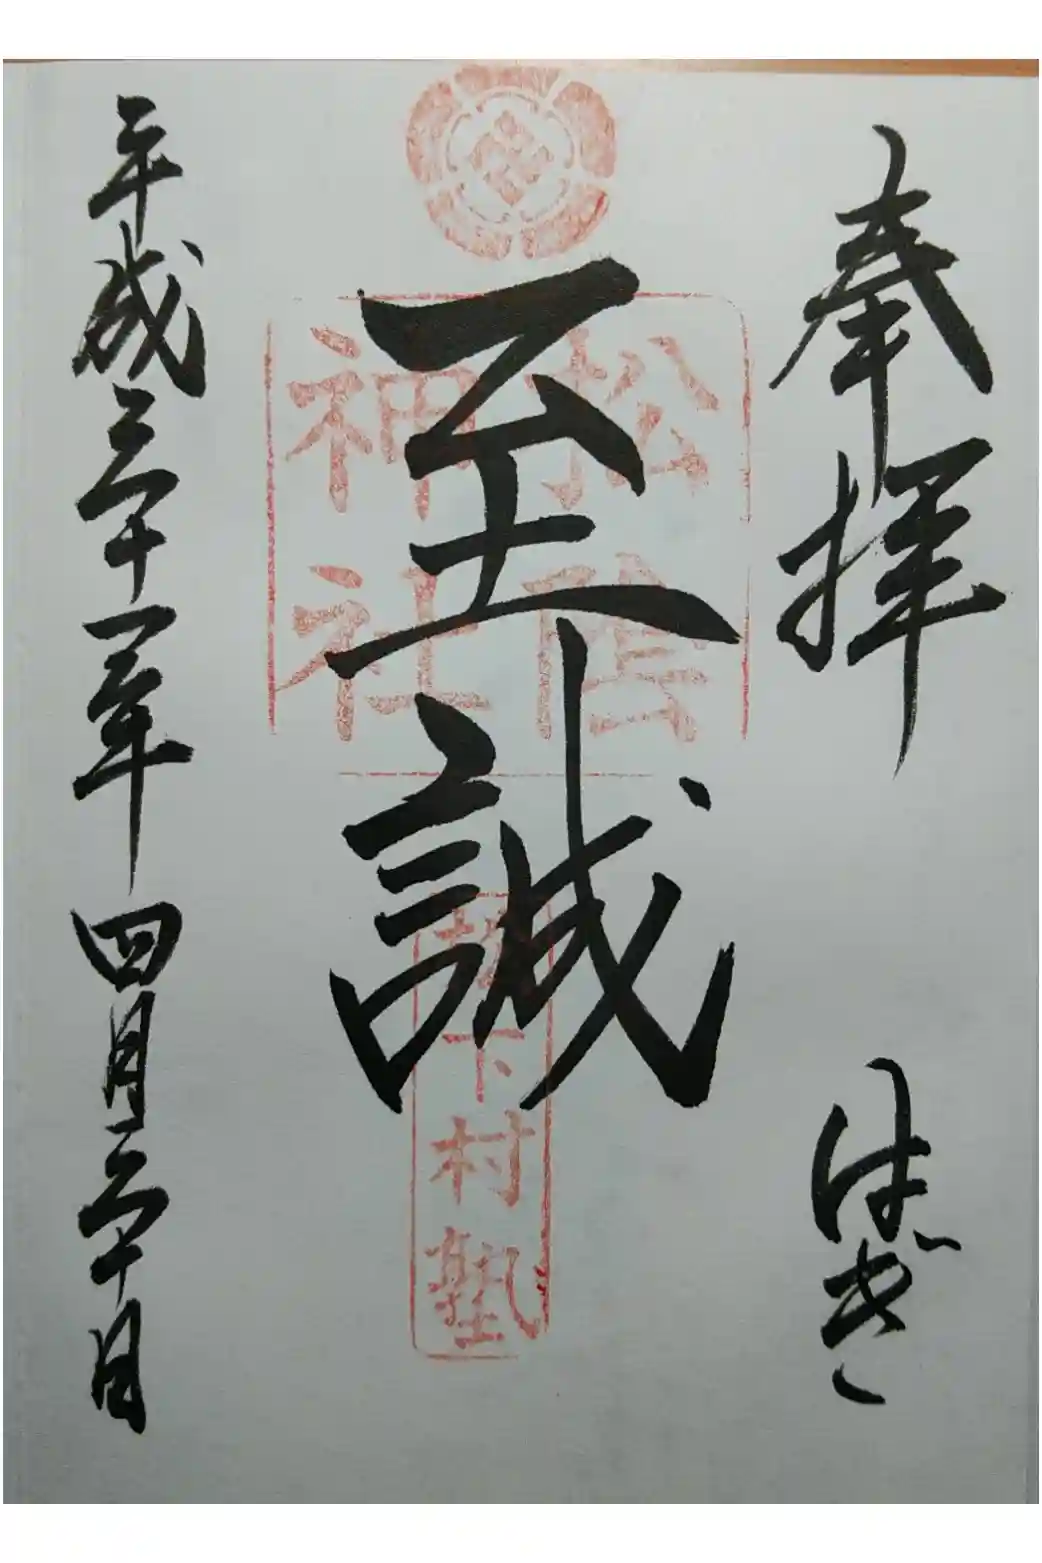 奉拝
至誠
松陰
神社
松下村塾
平成三十一年四月三十日